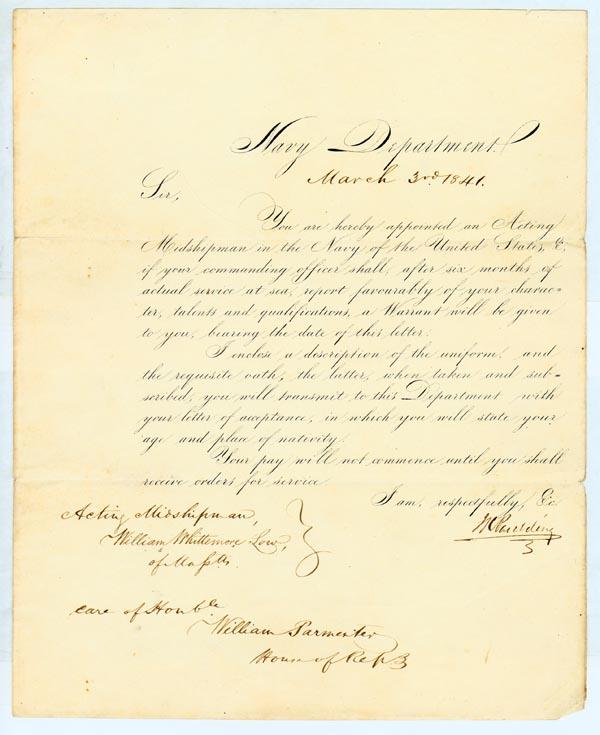 Navy Department.
March 3rd. 1841.
Sir,
You are hereby appointed an Acting
Midshipman in the Navy of the United States, &,
if your commanding officer shall, after six months of
actual service at sea, report favourably of your charac-
ter, talents and qualifications, a Warrant will be given
to you, bearing the date of this letter.
I enclose a description of the uniform, and
the requisite oath, the latter, when taken and sub-
scribed, you will transmit to this Department with
your letter of acceptance, in which you will state your
age and place of nativity.
Your pay will not commence until you shall
receive orders for service
I am, respectfully, &c
Paulding
Acting Midshipman,
William Whittemore Low,
of Massts.
care of Honble
William Parmenter
House of Reps